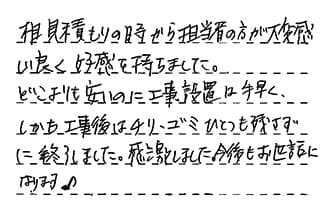 相見積もりの時から担当者の方が大変感
い良く好感を持ちました。
どこよりも安いのに工事設置は手早く、
しかも工事後はチリ、ゴミひとつも残さず
に終了しました。感激しました今後もお世話に
なります♪